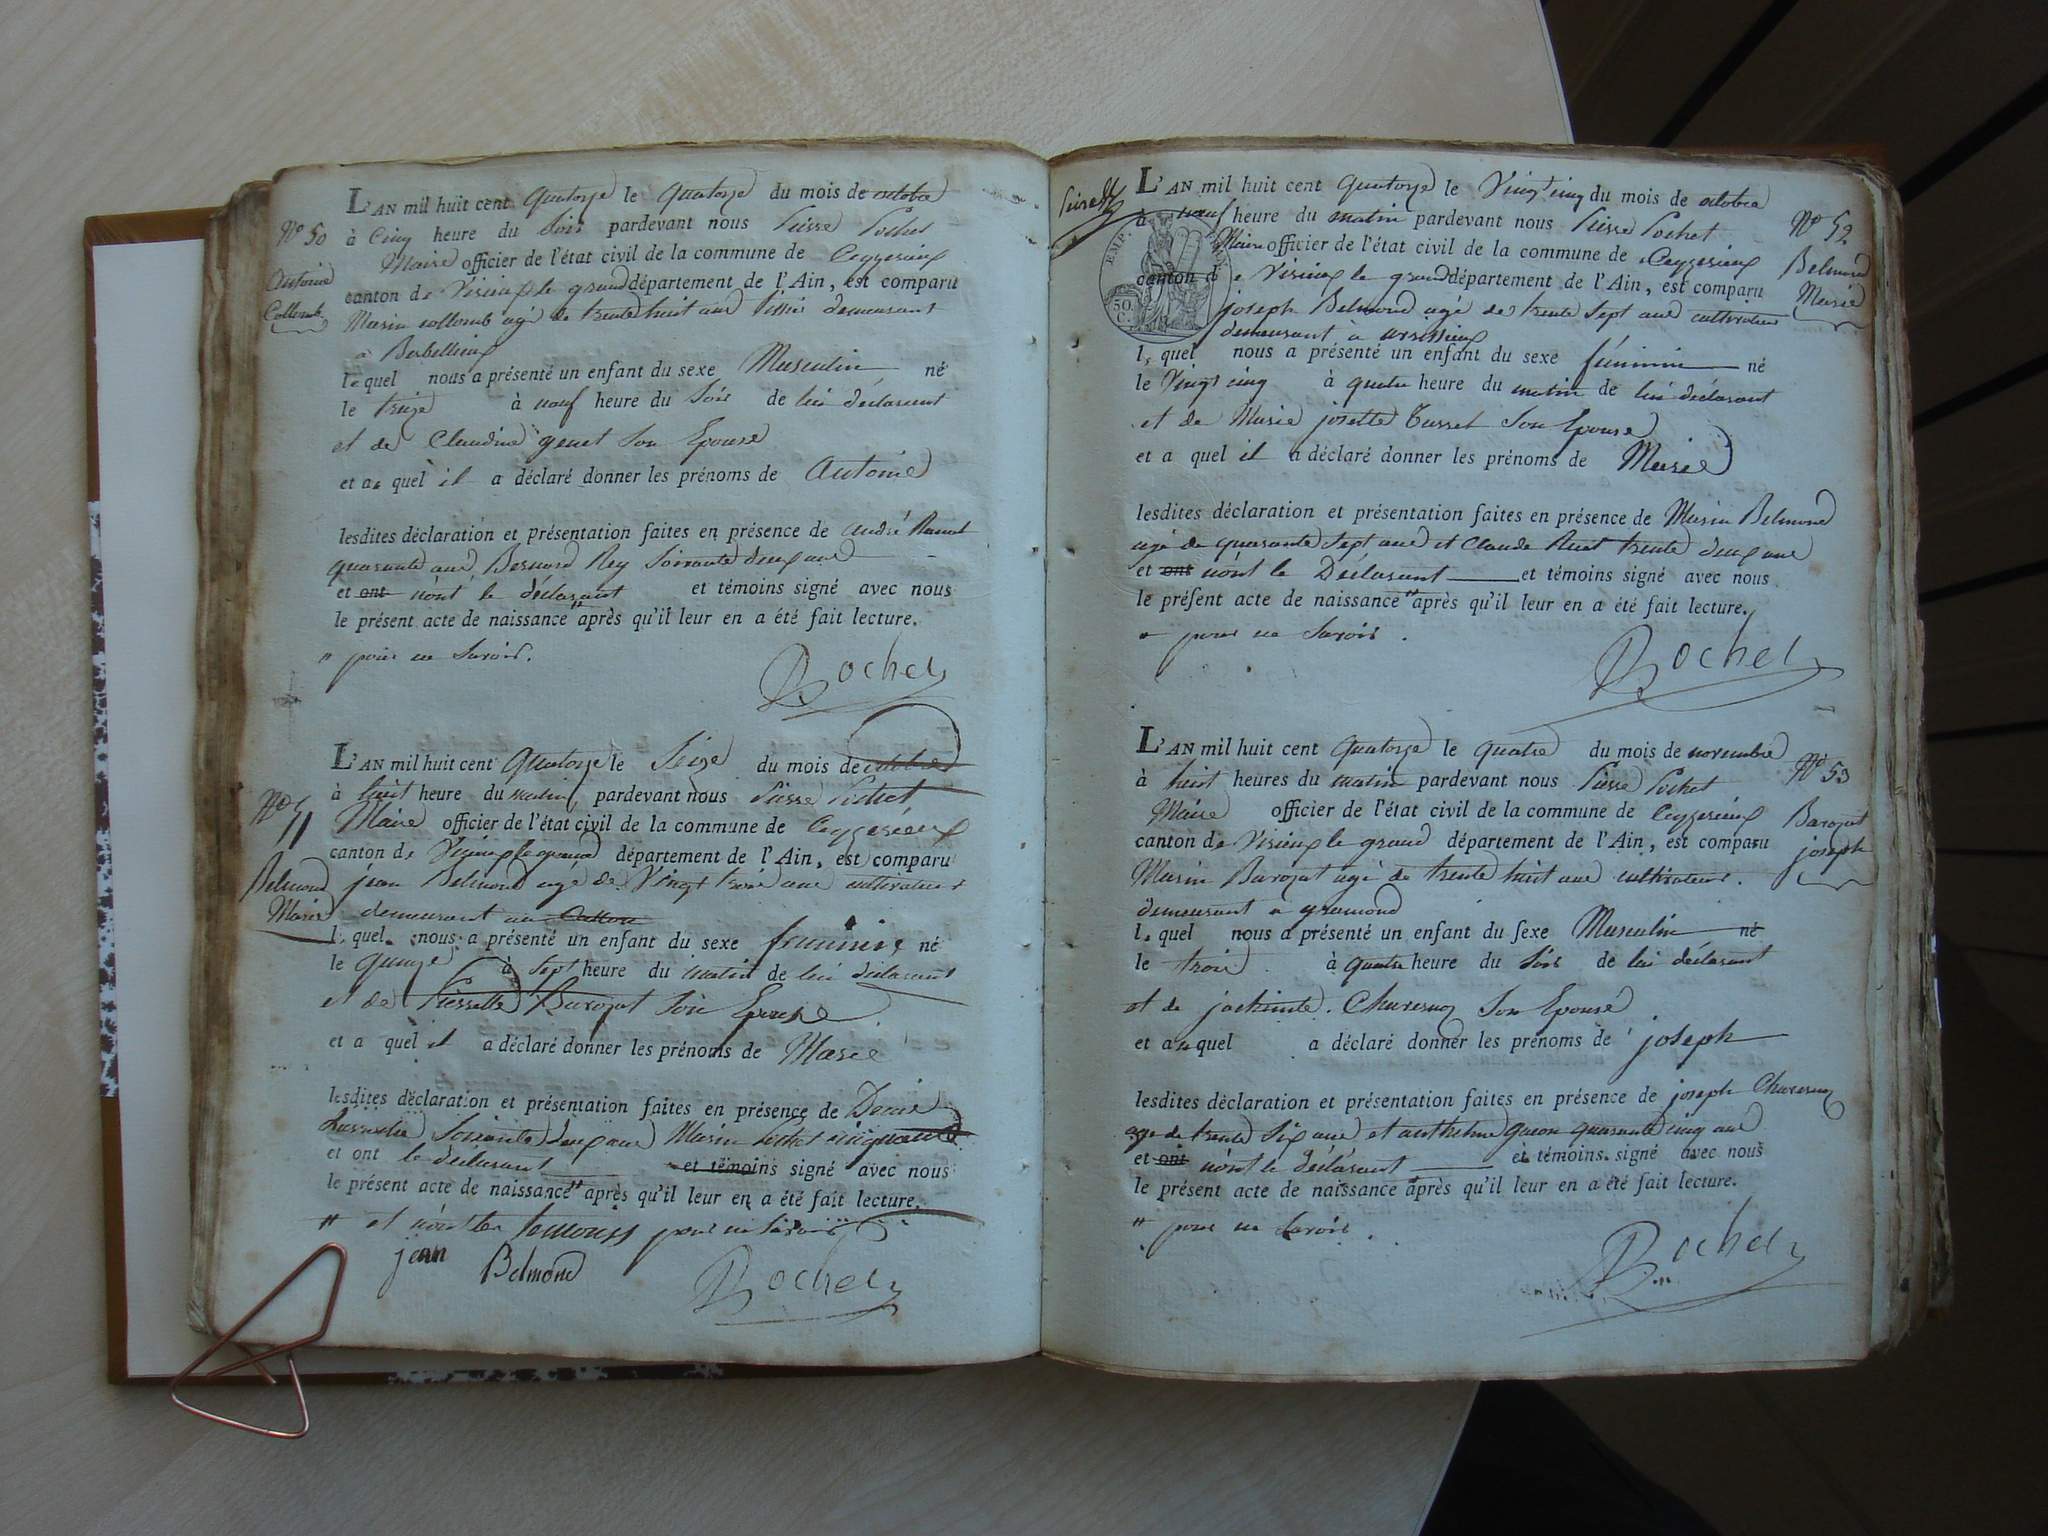 L'AN mil huit cent Quatorze le Quatorze du mois de octobre
No 50
à Cinq heure du Soir pardevant nous Pierre Pochet
Maire officier de l'état civil de la commune de Ceyzerieux
Antoine
Collomb
canton de Virieux le grand département de l'Ain, est comparu
Marin collomb agé de trente huit ans demeurant
a Berbellieux
le quel nous a présenté un enfant du sexe Masculin né
le treize à neuf heure du Soir de lui déclarant
et de Claudine genet Son Epouse
et au quel il a déclaré donner les prénoms de Antoine
lesdites déclaration et présentation faites en présence de andré
quarante ans Bernard Rey Soixante deux ans
et ont n'ont le déclarant et témoins signé avec nous
le présent acte de naissance " après qu'il leur en a été fait lecture.
" pour ne Savoir.
Pochet
L'AN mil huit cent Quatorze le Seize du mois de octobre
No 51
à huit heure du matin pardevant nous Pierre Pochet
Maire officier de l'état civil de la commune de Ceyzerieux
canton de Virieux le grand département de l'Ain, est comparu
Belmond
Marie
jean Belmond agé de Vingt trois ans cultivateur
demeurant au
l. quel nous a présenté un enfant du sexe feminine né
le quinze à sept heure du matin de lui déclarant
et de Pierrette Barozat Son Epouse
et a quel il a déclaré donner les prénoms de Marie
lesdites déclaration et présentation faites en présence de Denis
Soixante deux ans Marin Pochet cinquante
et ont le déclarant et témoins signé avec nous
le présent acte de naissance " après qu'il leur en a été fait lecture.
" et n'ont les temoins pour ne Savoir
jean Belmond
Pochet
L'AN mil huit cent Quatorze le Vingt cinq du mois de octobre
à neuf heure du matin pardevant nous Pierre Pochet
No 52
Belmond
Marie
Maire officier de l'état civil de la commune de Ceyzerieux
canton de Virieux le grand département de l'Ain, est comparu
EMP.
50
C.
joseph Belmond agé de trente Sept ans cultivateur
demeurant à
l. quel nous a présenté un enfant du sexe féminin né
le Vingt cinq à quatre heure du matin de lui déclarant
et de Marie josette Son Epouse
et a quel il a déclaré donner les prénoms de Marie
lesdites déclaration et présentation faites en présence de Marin Belmond
agé de quarante Sept ans et Claude trente deux ans
et ont n'ont le Déclarant et témoins signé avec nous
le présent acte de naissance " après qu'il leur en a été fait lecture.
" pour ne Savoir.
Pochet
L'AN mil huit cent Quatorze le quatre du mois de novembre
No 53
à huit heures du matin pardevant nous Pierre Pochet
Maire officier de l'état civil de la commune de Ceyzerieux
Barozat
joseph
canton de Virieux le grand département de l'Ain, est comparu
Marin Barozat agé de trente huit ans cultivateur.
demeurant a gramond
l. quel nous a présenté un enfant du sexe Masculin né
le trois à quatre heure du Soir de lui déclarant
et de jachinte Son Epouse
et au quel a déclaré donner les prénoms de joseph
lesdites déclaration et présentation faites en présence de joseph
agé de trente Six ans et anthelme quarante cinq ans
et ont n'ont le déclarant et témoins signé avec nous
le présent acte de naissance après qu'il leur en a été fait lecture.
" pour ne Savoir.
Pochet